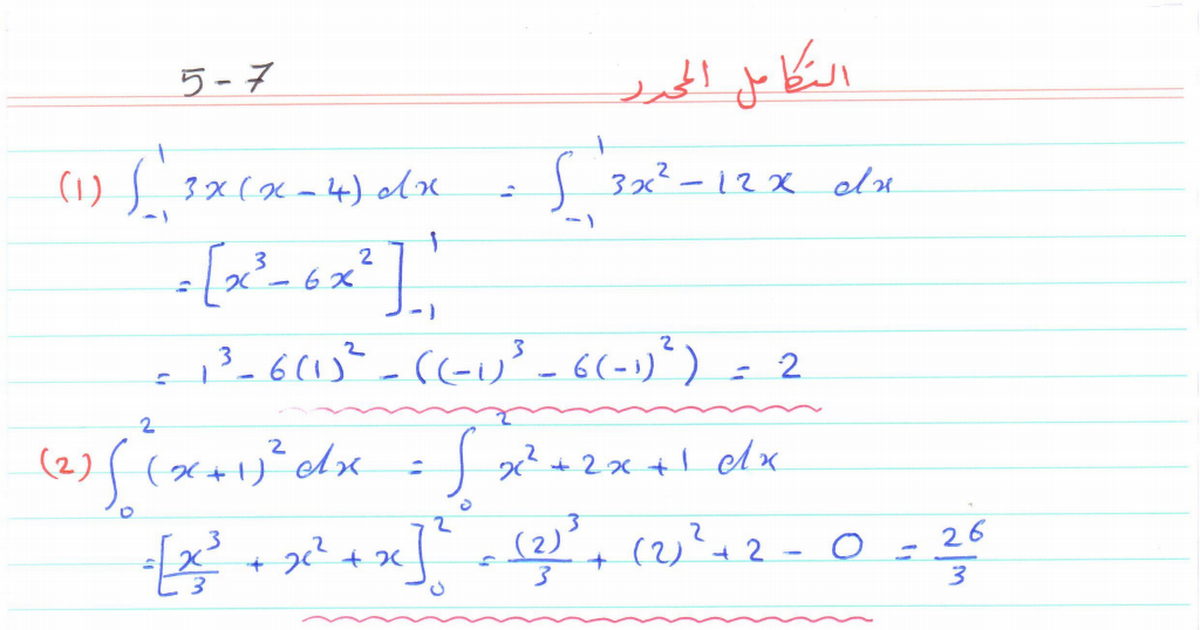 5-7 التكامل المحدد
(1) ∫₋₁¹ 3x(x-4) dx = ∫₋₁¹ 3x²-12x dx
= [x³-6x²]₋₁¹
= 1³-6(1)²-((-1)³-6(-1)²) = 2
(2) ∫₀² (x+1)² dx = ∫₀² x²+2x+1 dx
= [x³/3 + x² + x]₀² = (2)³/3 + (2)² + 2 - 0 = 26/3